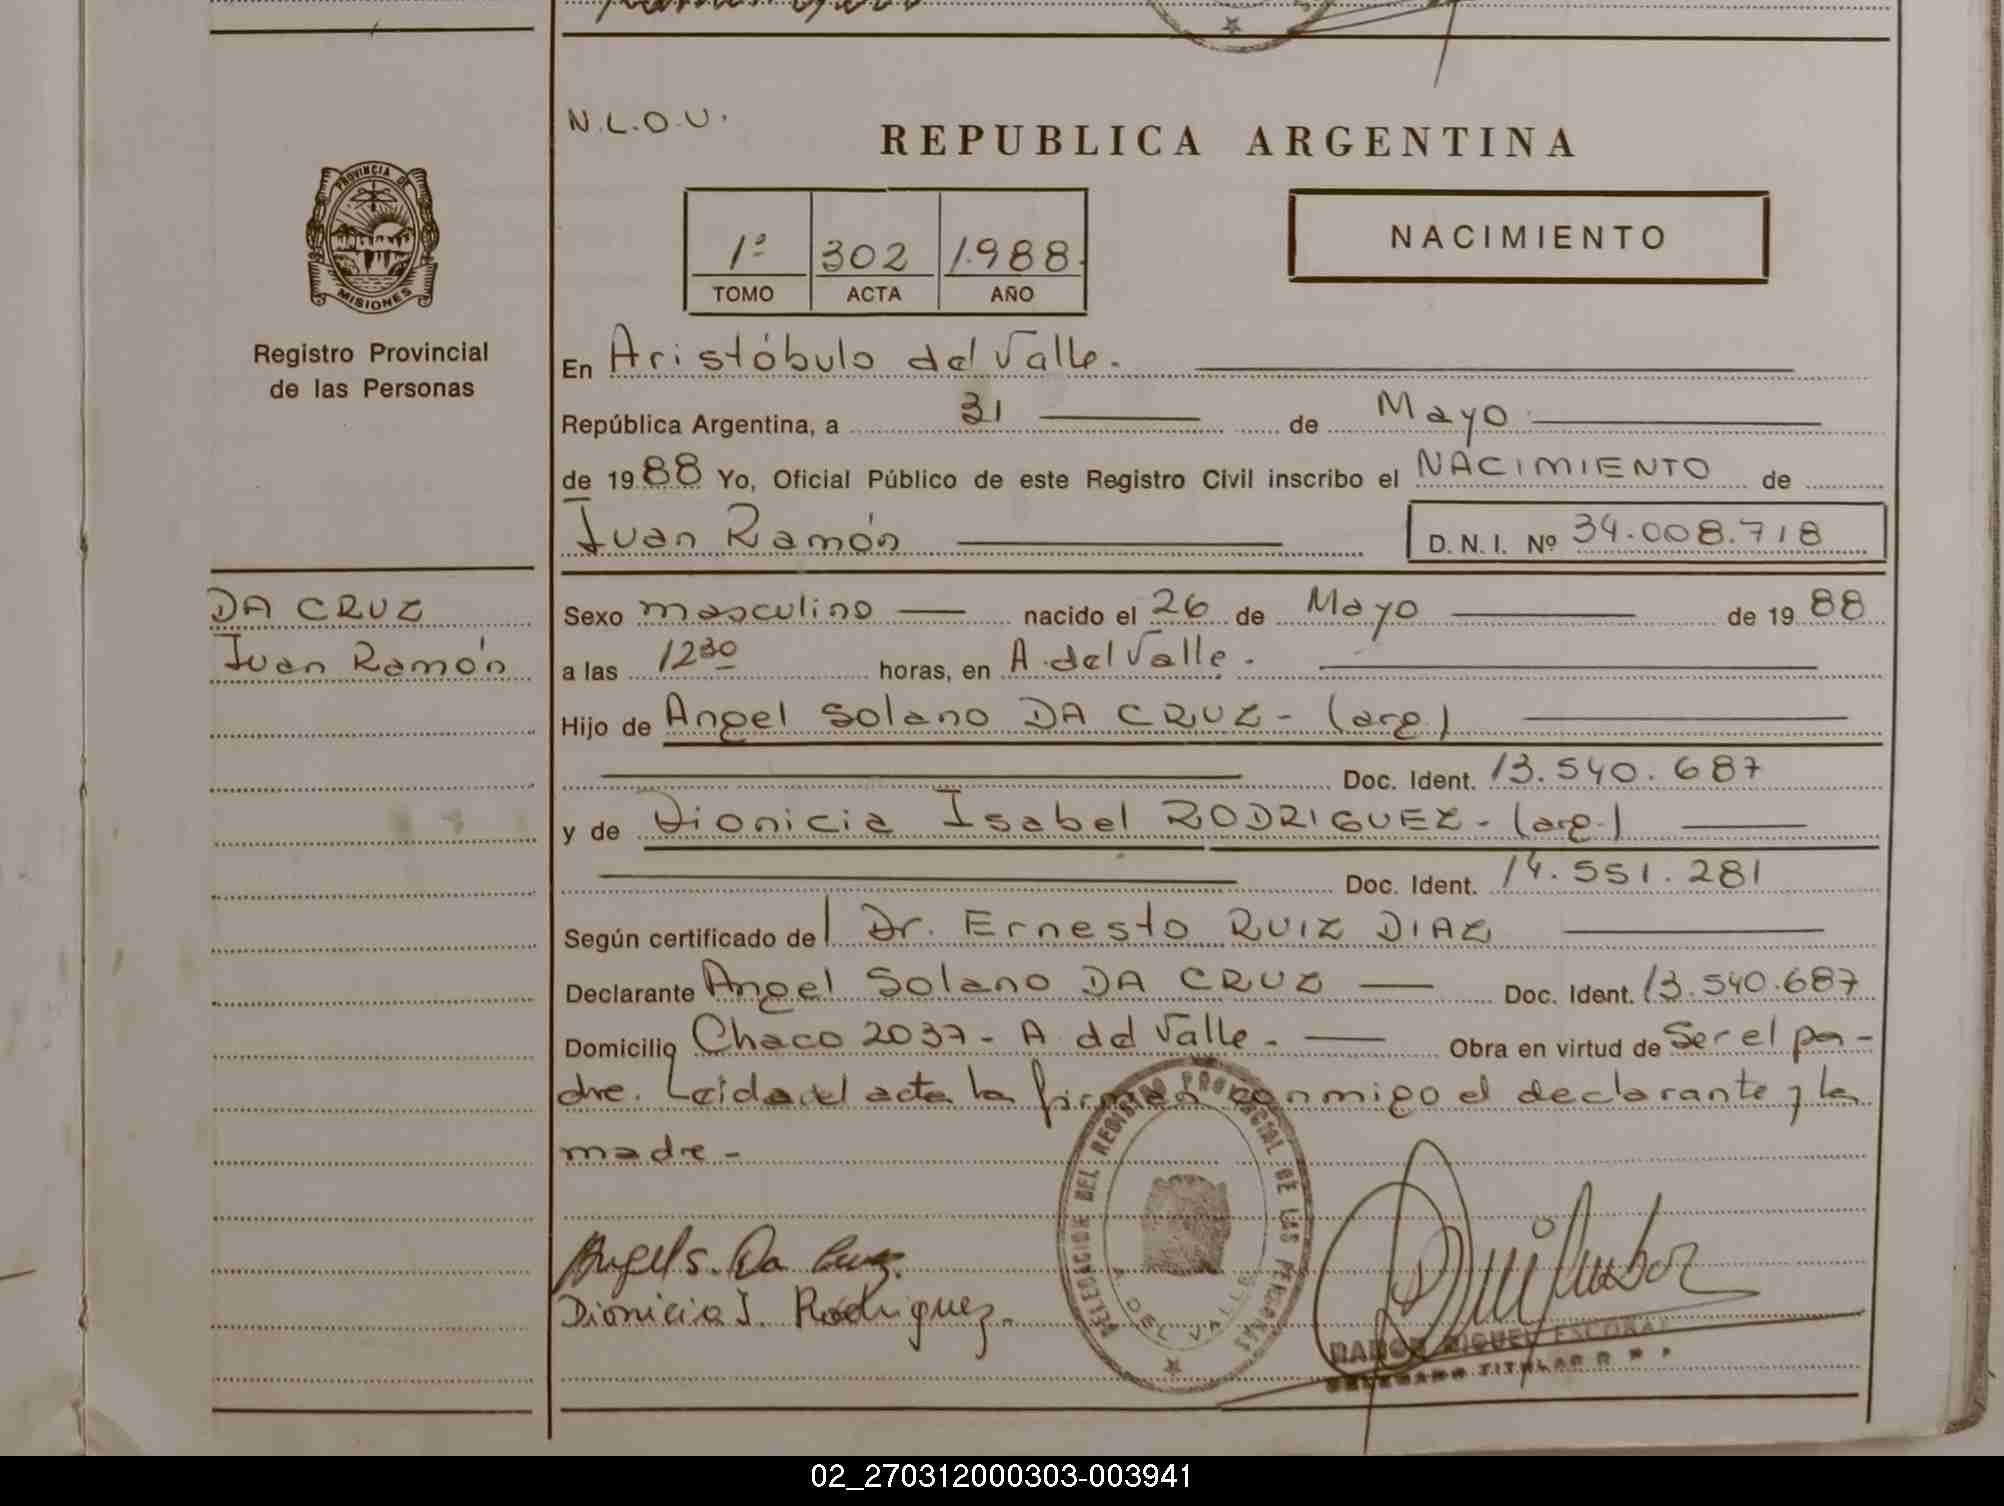 N.L.O.U.
REPUBLICA ARGENTINA
PROVINCIA DE
MISIONES
Registro Provincial
de las Personas
1º 302 1.988.
TOMO ACTA AÑO
NACIMIENTO
En Aristóbulo del Valle.
República Argentina, a 31 de Mayo
de 19 88 Yo, Oficial Público de este Registro Civil inscribo el NACIMIENTO de
Juan Ramón D. N. I. Nº 34.008.718
DA CRUZ
Juan Ramón
Sexo masculino nacido el 26 de Mayo de 19 88
a las 12 30 horas, en A. del Valle.
Hijo de Angel Solano DA CRUZ - (arg.)
Doc. Ident. 13.540.687
y de Dionicia Isabel RODRIGUEZ - (arg.)
Doc. Ident. 14.551.281
Según certificado del Dr. Ernesto RUIZ DIAZ
Declarante Angel Solano DA CRUZ Doc. Ident. 13.540.687
Domicilio Chaco 2037 - A del Valle. Obra en virtud de Ser el pa-
dre. Leida el acta la firman conmigo el declarante y la
madre -
Angel S. Da Cruz.
Dionicia I. Rodriguez.
DELEGACION DEL REGISTRO PROVINCIAL DE LAS PERSONAS
A. DEL VALLE
RAMON MIGUEL ESCOBAR
DELEGADO TITULAR R P P
02_270312000303-003941